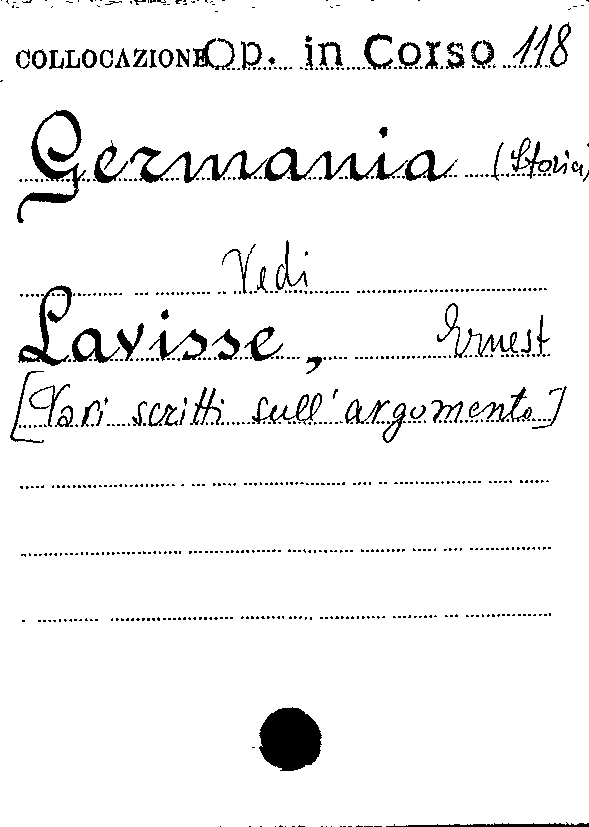 COLLOCAZIONE Op. in Corso 118
Germania (Storia)
Vedi
Lavisse, Ernest
[Vari scritti sull'argomento]